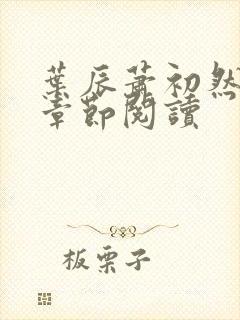 葉辰蕭初然
章節閱讀
板栗子